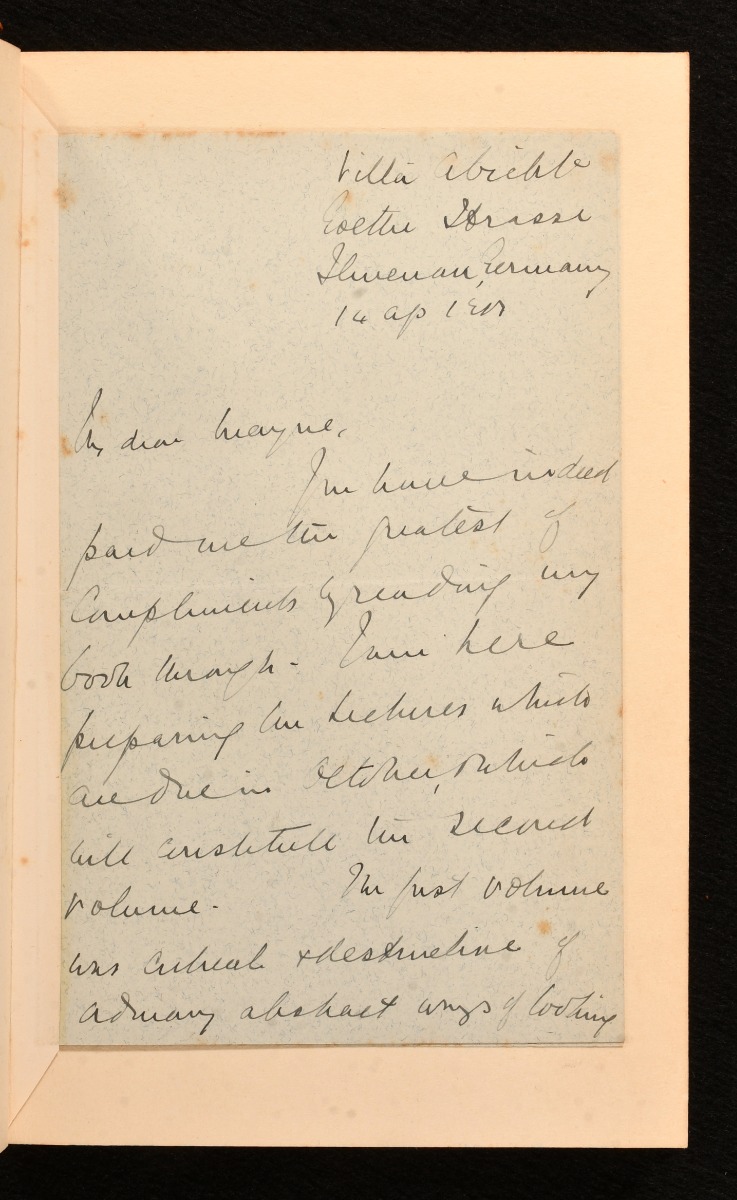 Villa
Goethe Strasse
Ilmenau, Germany
14 Ap
My dear Mayne,
You have indeed
paid me the greatest of
compliments by reading my
book through. I am here
preparing the lectures which
are due in October, & which
will constitute the second
volume. The first volume
was critical & destructive of
ordinary abstract ways of looking